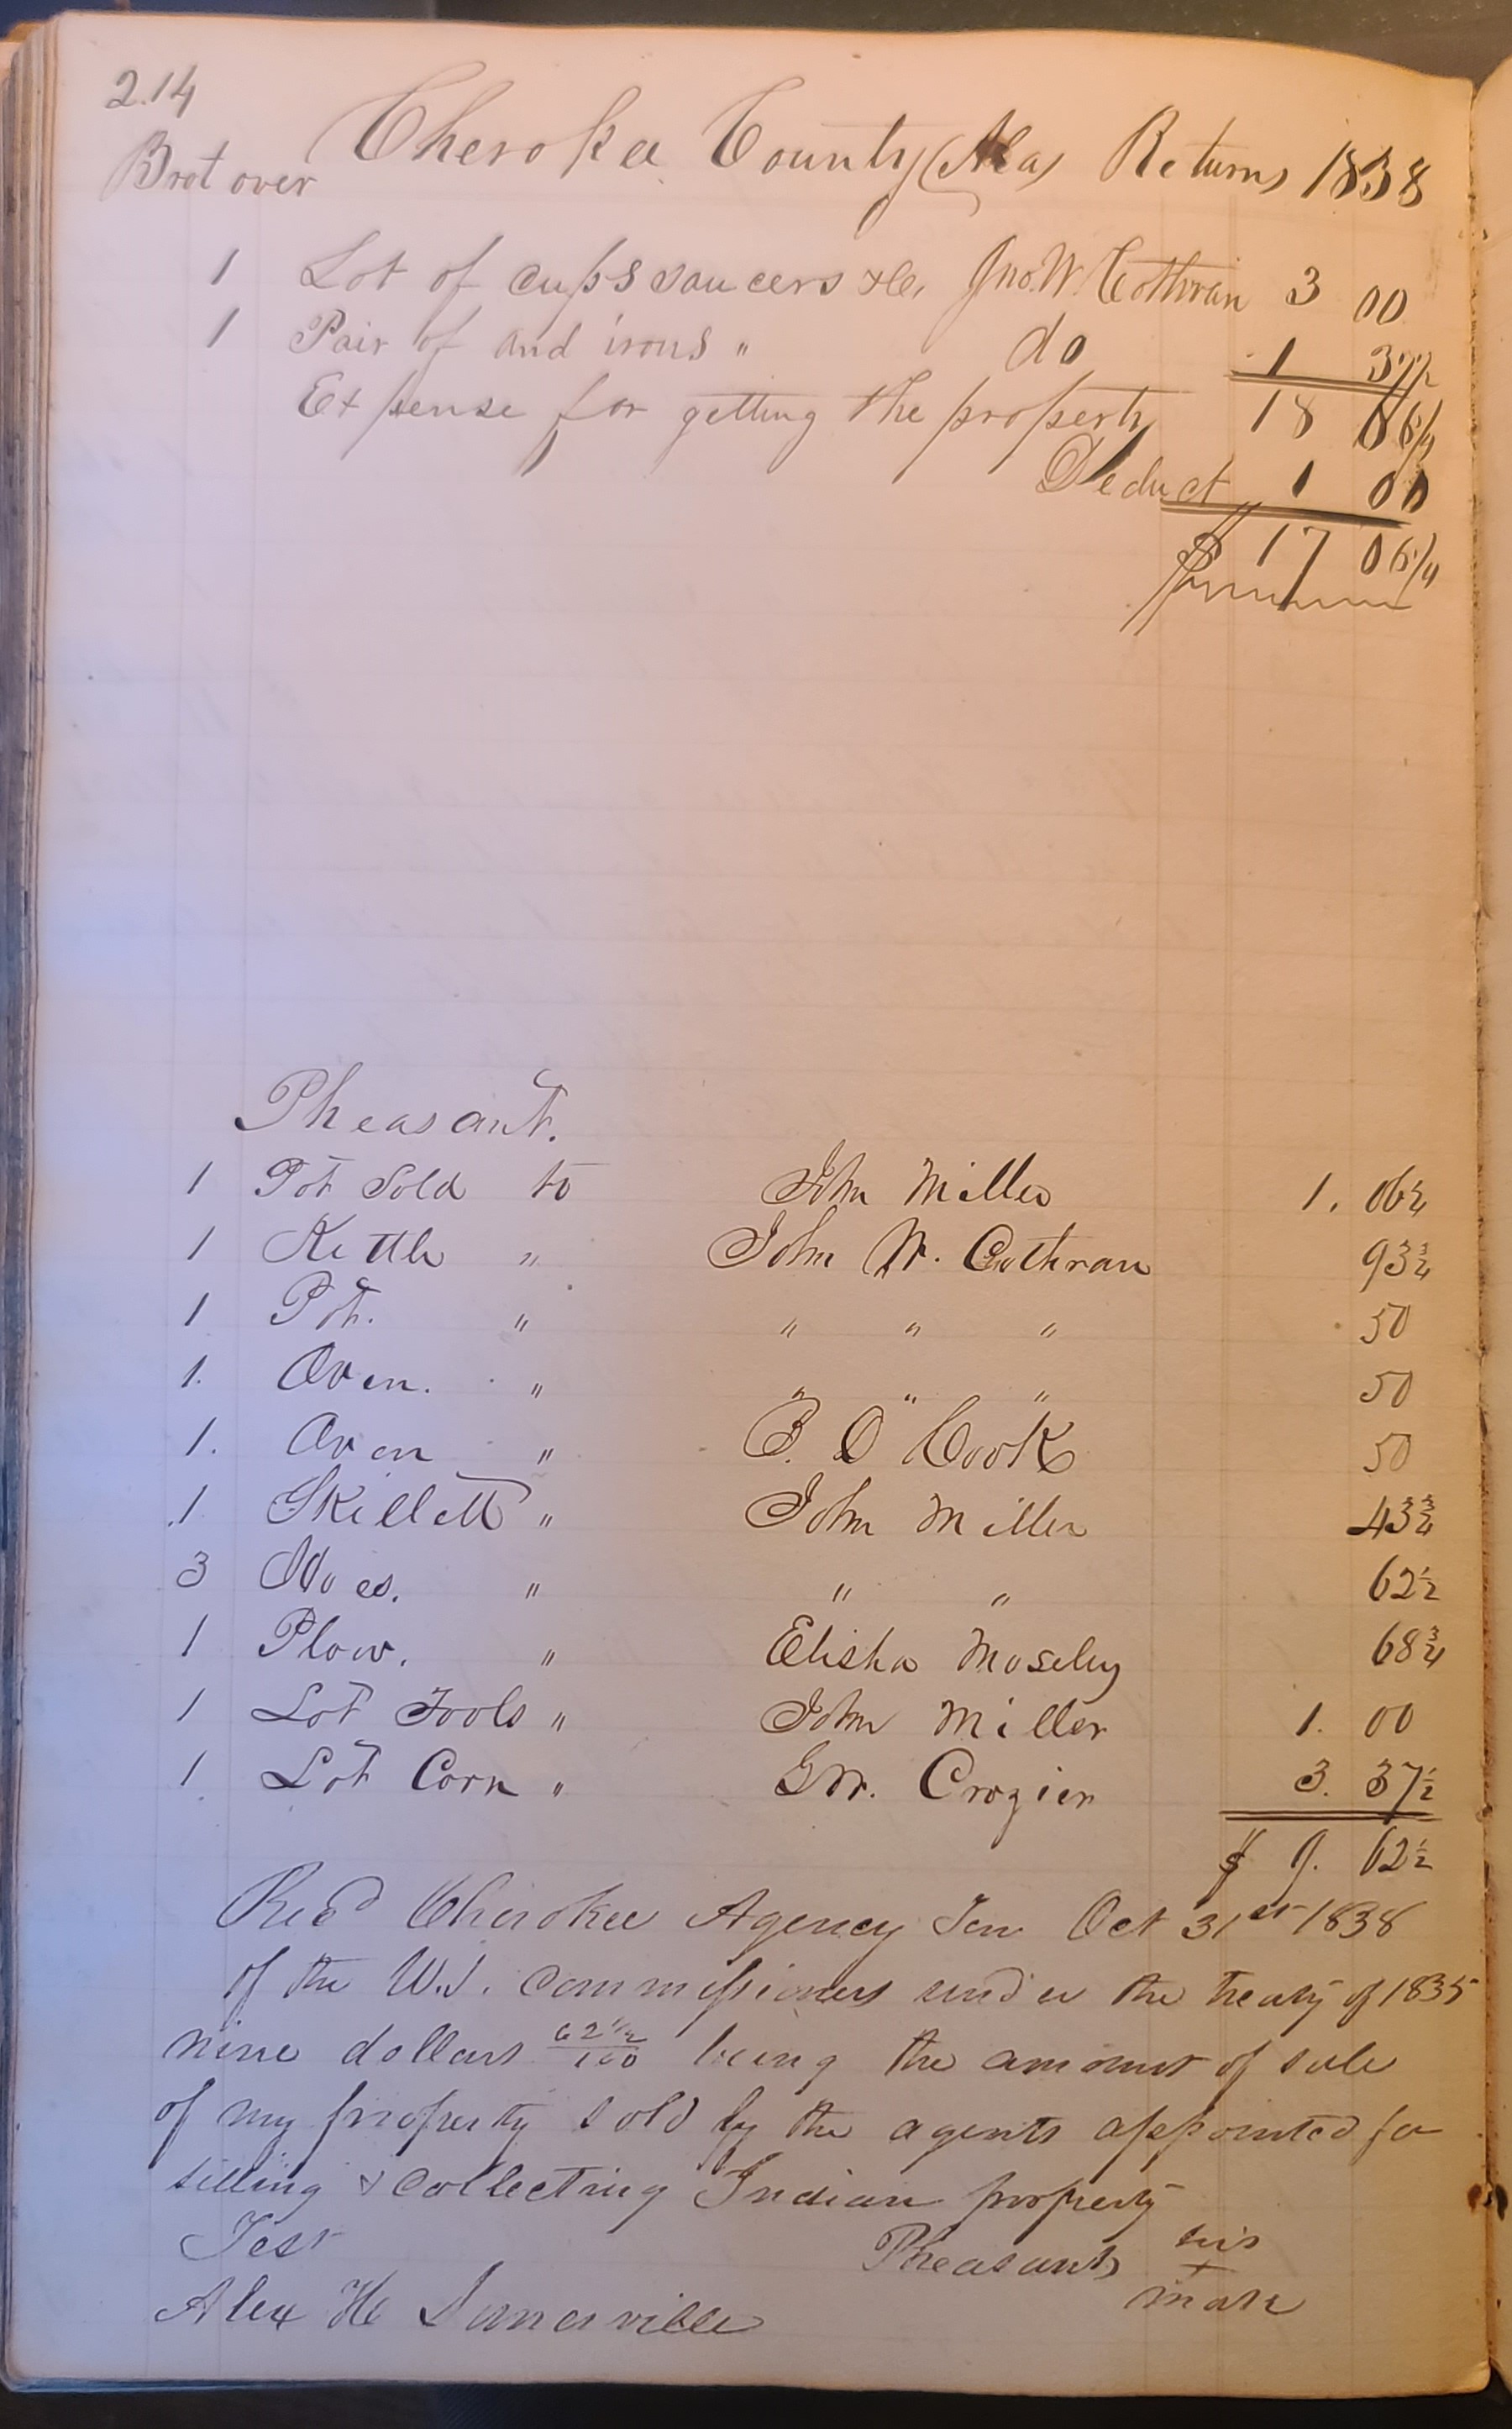 214
Cherokee County (Ala) Returns 1838
Brot over
1 Lot of cups saucers &c. Jno. W. Cothran 3 00
1 Pair of and irons " do 1 37½
Expense for getting the property 18 06¼
Deduct 1 00
$ 17 06¼
Pheasant.
1 Pot Sold to John Miller 1. 06¼
1 Kettle " John W. Cothran 93¾
1 Pot. " " " " 50
1. Oven. " " " " 50
1. Oven " B. O Cook 50
1 Skillett " John Miller 43¾
3 Hoes. " " " 62½
1 Plow. " Elisha Moseley 68¾
1 Lot Tools " John Miller 1. 00
1 Lot Corn " G W. Crozier 3. 37½
$ 9. 62½
Recd Cherokee Agency Ten Oct 31st 1838
of the U.S. Commissioners under the treaty of 1835
nine dollars 62½/100 being the amount of sale
of my property sold by the agents appointed for
selling & collecting Indian property
Test Pheasant his
x
Alex H Somerville mark